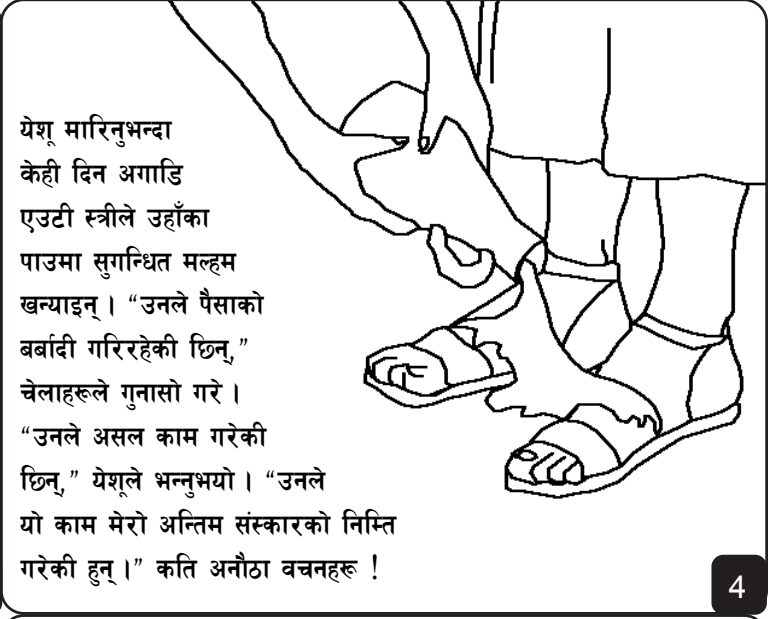 येशू मारिनुभन्दा
केही दिन अगाडि
एउटी स्त्रीले उहाँका
पाउमा सुगन्धित मल्हम
खन्याइन् । “उनले पैसाको
बर्बादी गरिरहेकी छिन्,”
चेलाहरूले गुनासो गरे ।
“उनले असल काम गरेकी
छिन्,” येशूले भन्नुभयो । “उनले
यो काम मेरो अन्तिम संस्कारको निम्ति
गरेकी हुन् ।” कति अनौठा वचनहरू !
4